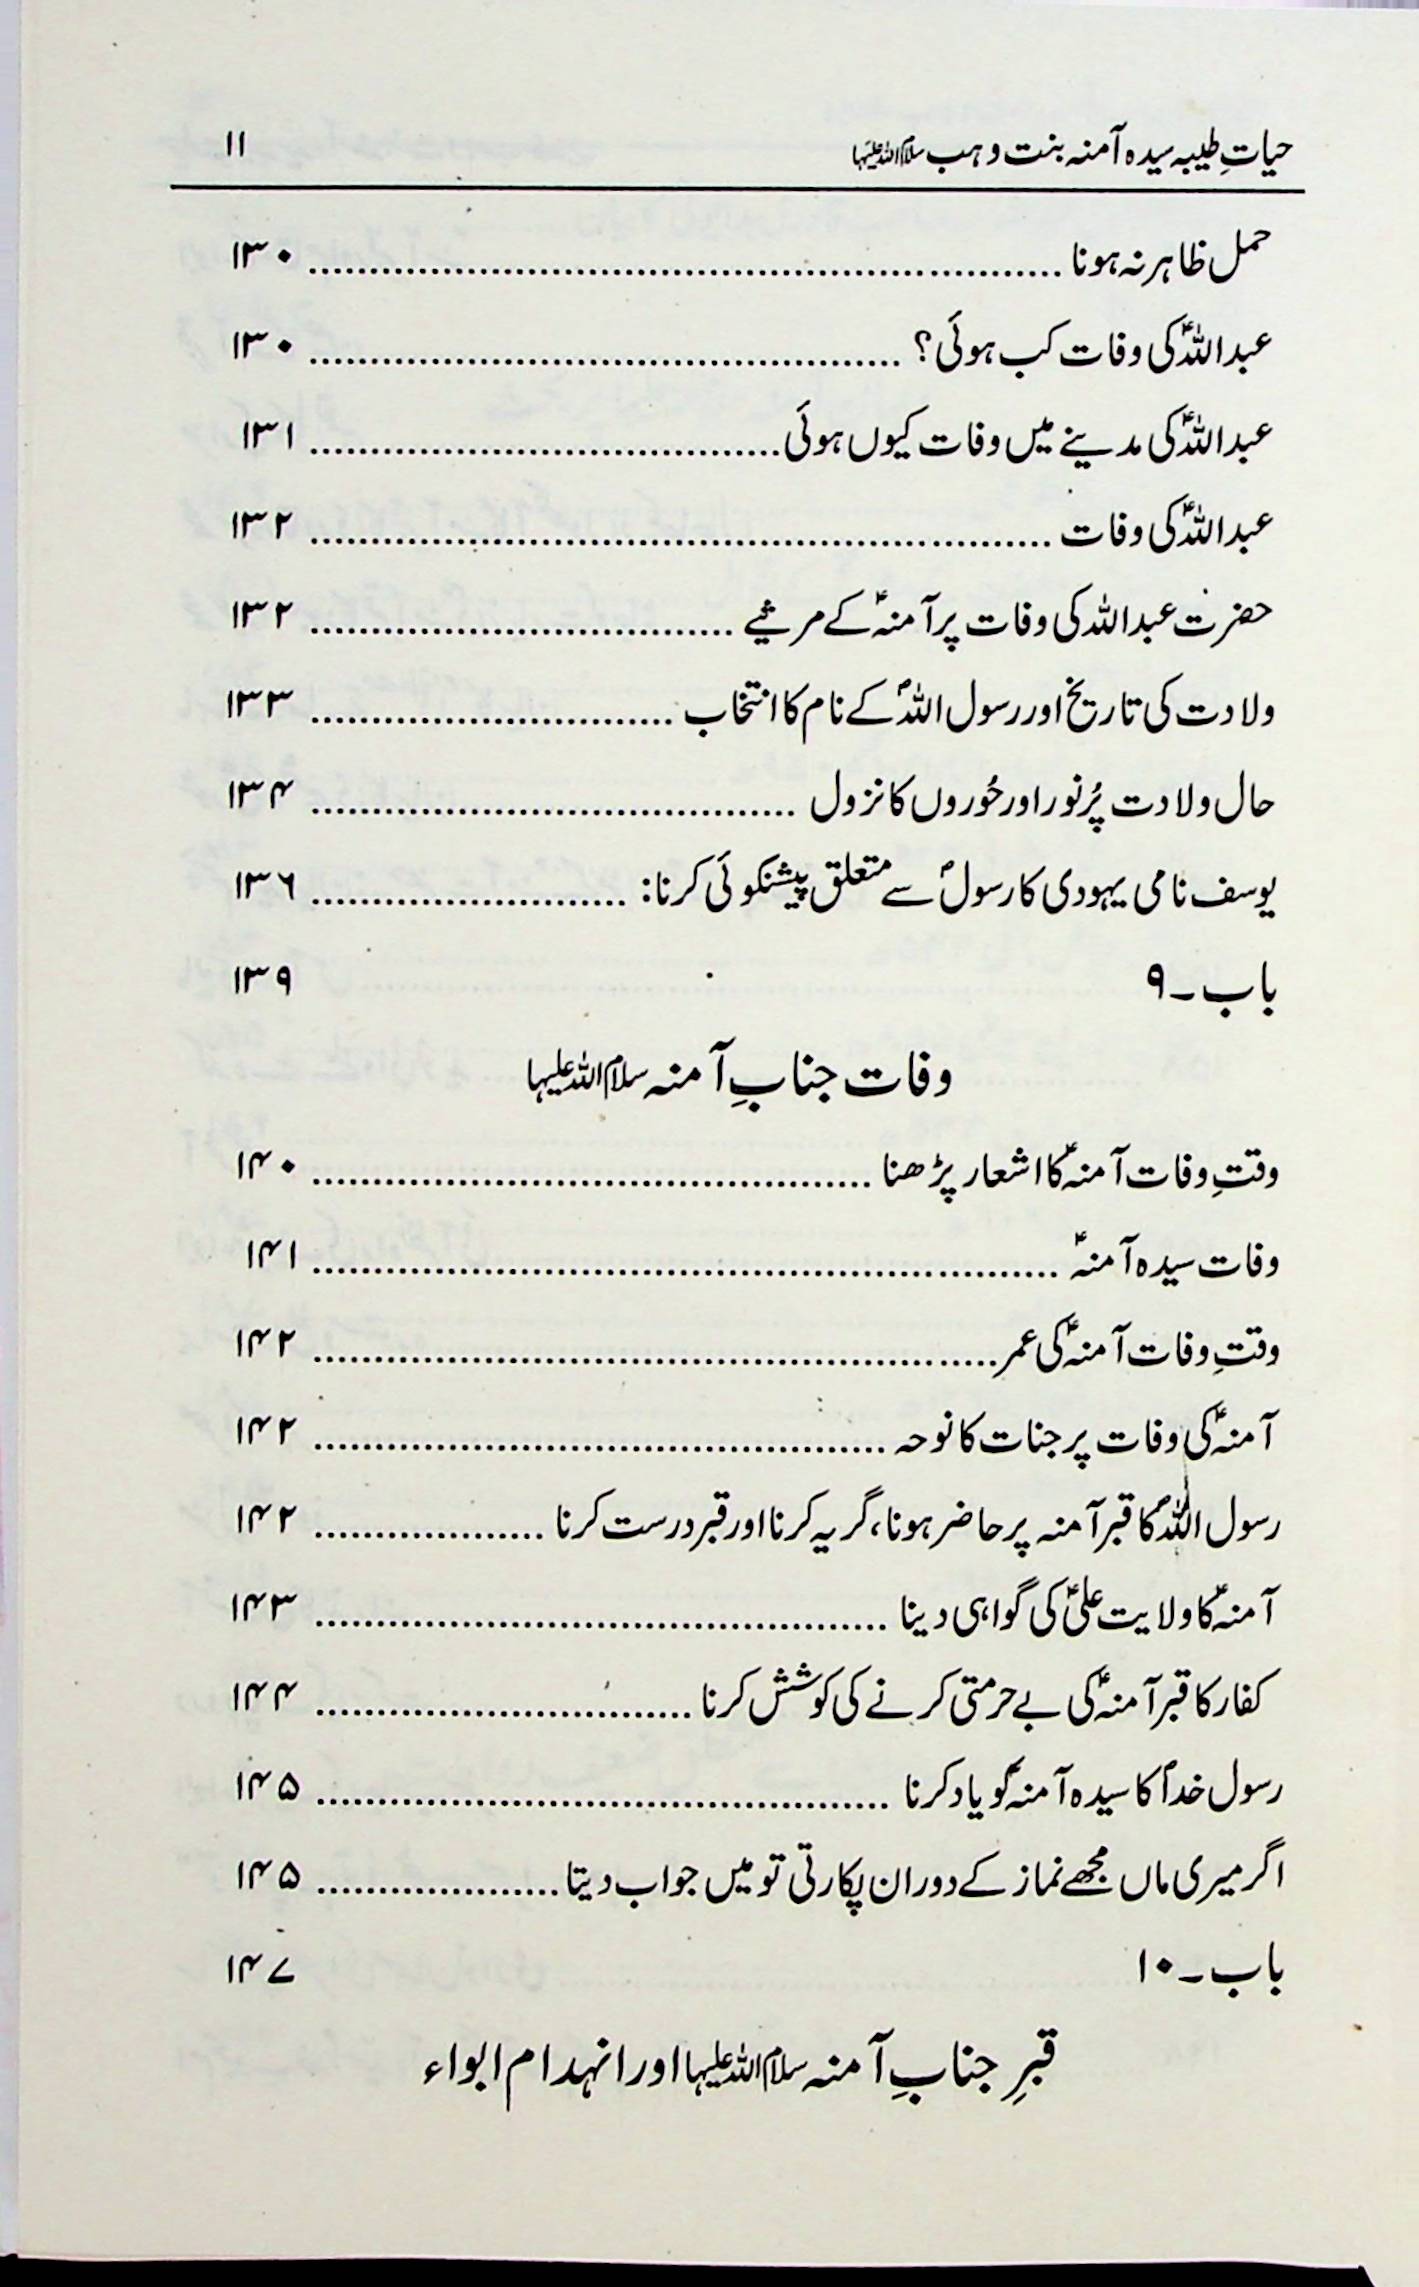 حیاتِ طیبہ سیدہ آمنہ بنت وہب سلام اللہ علیہا ۱۱
حمل ظاہر نہ ہونا ........ ۱۳۰
عبداللہؑ کی وفات کب ہوئی؟ ........ ۱۳۰
عبداللہؑ کی مدینے میں وفات کیوں ہوئی ........ ۱۳۱
عبداللہؑ کی وفات ........ ۱۳۲
حضرت عبداللہ کی وفات پر آمنہؑ کے مرثیے ........ ۱۳۲
ولادت کی تاریخ اور رسول اللہؐ کے نام کا انتخاب ........ ۱۳۳
حال ولادت پُرنور اور حُوروں کا نزول ........ ۱۳۴
یوسف نامی یہودی کا رسولؐ سے متعلق پیشنگوئی کرنا: ........ ۱۳۶
باب ۔ ۹ ۱۳۹
وفات جنابِ آمنہ سلام اللہ علیہا
وقتِ وفات آمنہؑ کا اشعار پڑھنا ........ ۱۴۰
وفات سیدہ آمنہؑ ........ ۱۴۱
وقتِ وفات آمنہؑ کی عمر ........ ۱۴۲
آمنہؑ کی وفات پر جنات کا نوحہ ........ ۱۴۲
رسول اللہؐ کا قبر آمنہ پر حاضر ہونا، گریہ کرنا اور قبر درست کرنا ........ ۱۴۲
آمنہؑ کا ولایت علیؑ کی گواہی دینا ........ ۱۴۳
کفار کا قبر آمنہؑ کی بے حرمتی کرنے کی کوشش کرنا ........ ۱۴۴
رسول خداؐ کا سیدہ آمنہؑ کو یاد کرنا ........ ۱۴۵
اگر میری ماں مجھے نماز کے دوران پکارتی تو میں جواب دیتا ........ ۱۴۵
باب ۔ ۱۰ ۱۴۷
قبرِ جنابِ آمنہ سلام اللہ علیہا اور انہدام ابواء